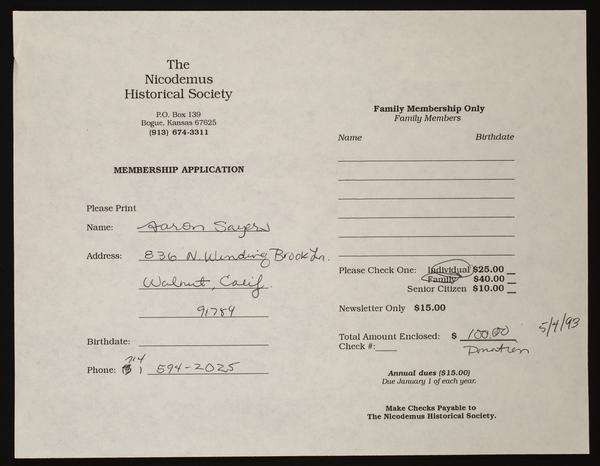 The
Nicodemus
Historical Society
P.O. Box 139
Bogue, Kansas 67625
(913) 674-3311
MEMBERSHIP APPLICATION
Please Print
Name: Aaron Sayers
Address: 836 N. Winding Brook Ln.
Walnut, Calif.
91789
Birthdate:
Phone: 714 ) 594-2025
Family Membership Only
Family Members
Name Birthdate
Please Check One: Individual $25.00
Family $40.00
Senior Citizen $10.00
Newsletter Only $15.00
Total Amount Enclosed: $ 100.00 5/4/93
Check #: Donation
Annual dues ($15.00)
Due January 1 of each year.
Make Checks Payable to
The Nicodemus Historical Society.